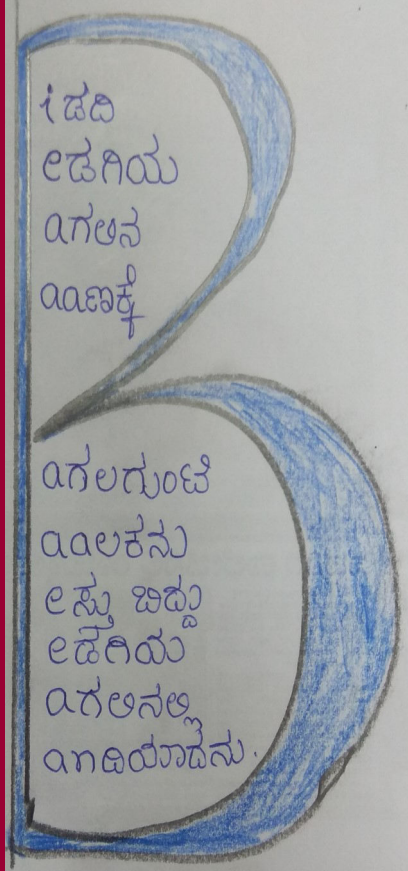 iಡದಿ
eಡಗಿಯ
aಗಲಿನ
aaಣಕ್ಕೆ
aಗಲಗುಂಟೆ
aaಲಕನು
eಸ್ತು ಬಿದ್ದು
eಡಗಿಯ
aಗಲಿನಲ್ಲಿ
anಡಿಯಾದನು.